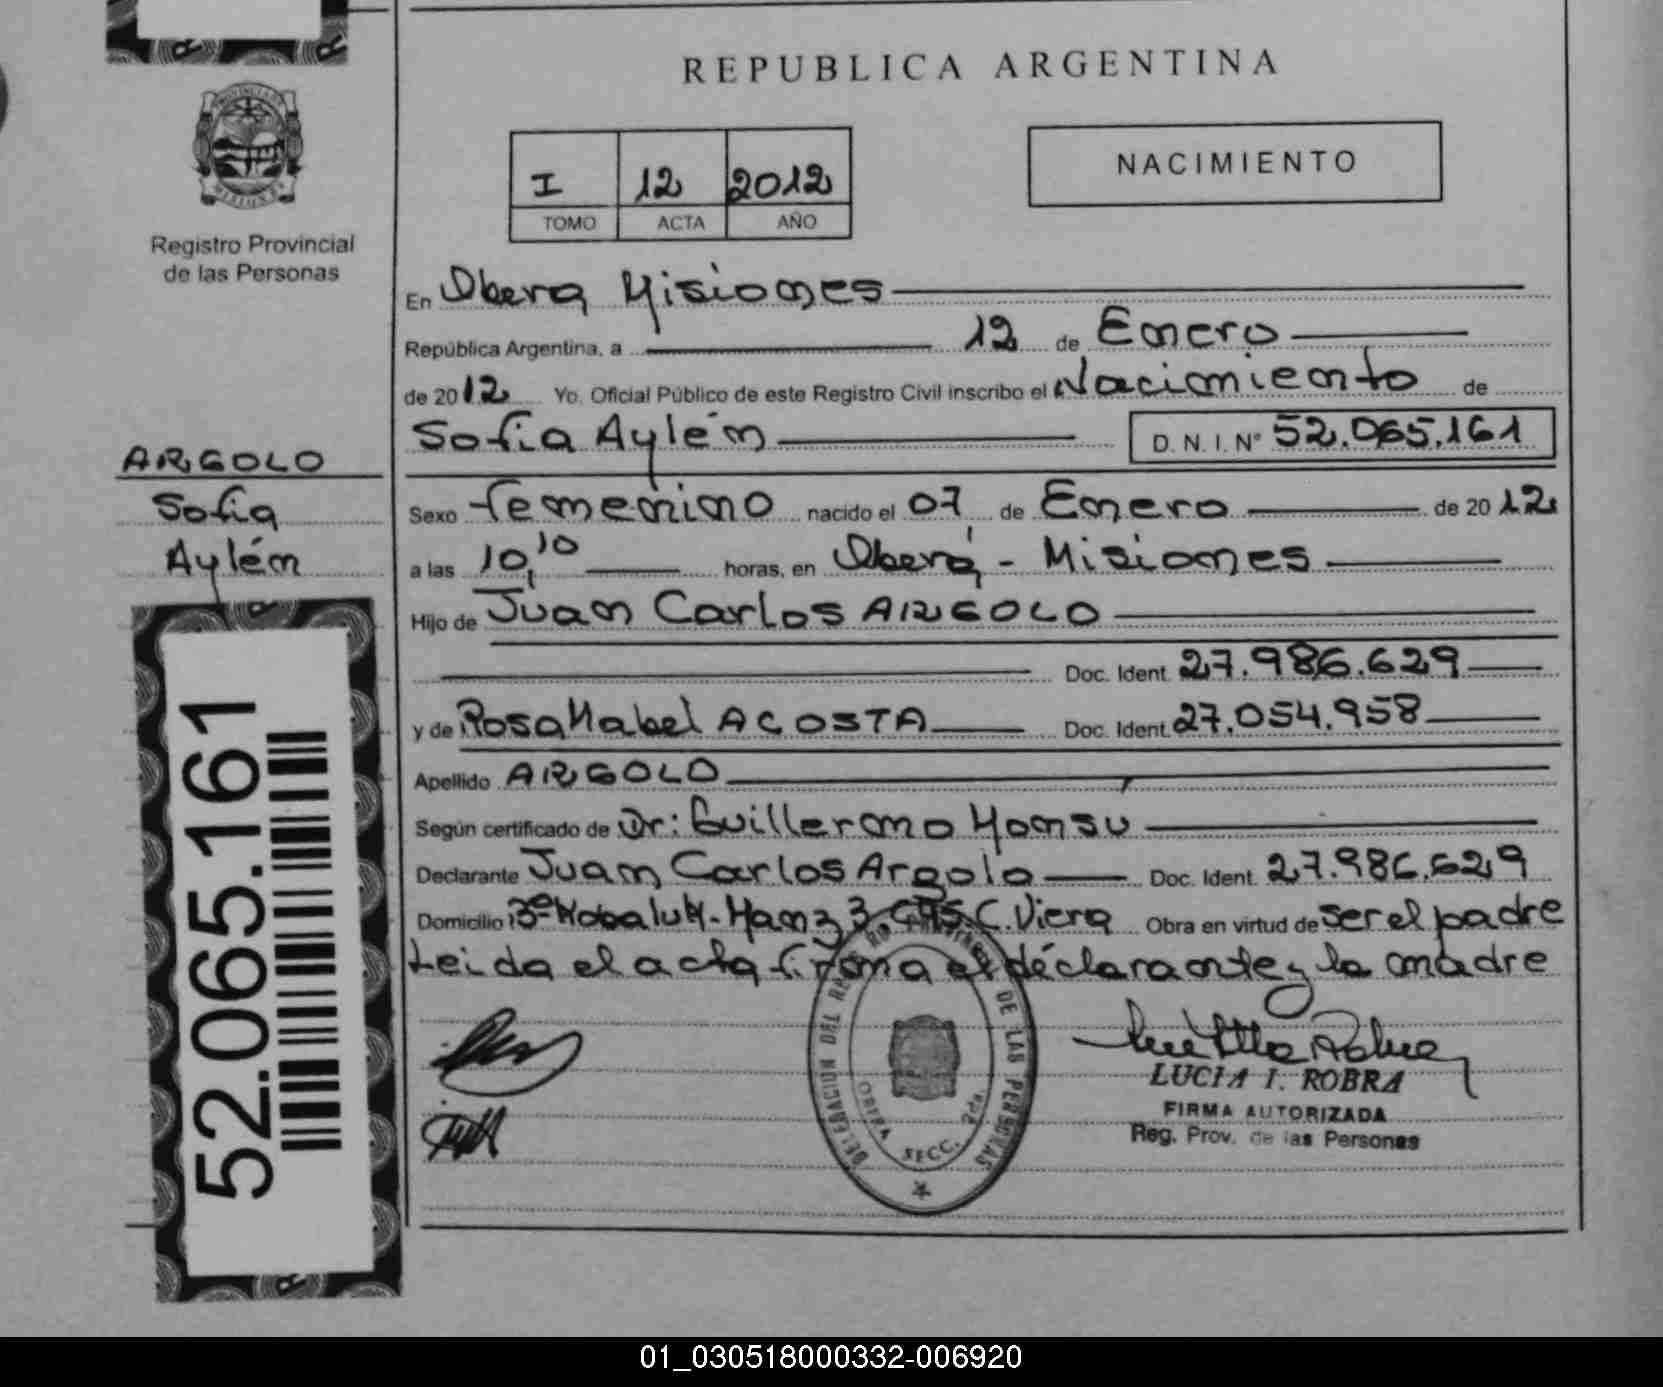 REPUBLICA ARGENTINA
PROVINCIA DE
MISIONES
Registro Provincial
de las Personas
I 12 2012
TOMO ACTA AÑO
NACIMIENTO
En Obera Misiones
República Argentina, a 12 de Enero
de 2012 Yo. Oficial Público de este Registro Civil inscribo el Nacimiento de
Sofía Aylén D. N. I. N° 52.065.161
ARGOLO
Sofía
Aylén
Sexo femenino nacido el 07 de Enero de 2012
a las 10,10 horas, en Oberá - Misiones
Hijo de Juan Carlos ARGOLO
Doc. Ident. 27.986.629
y de Rosa Mabel ACOSTA Doc. Ident. 27.054.958
Apellido ARGOLO
Según certificado de Dr: Guillermo
Declarante Juan Carlos Argolo Doc. Ident. 27.986.629
Domicilio C. Viera Obra en virtud de ser el padre
Leida el acta firma el déclarante y la madre
52.065.161
DELEGACION DEL DE LAS PERSONAS
OBERA SECC. 2da.
LUCIA I. ROBRA
FIRMA AUTORIZADA
Reg. Prov. de las Personas
01_030518000332-006920